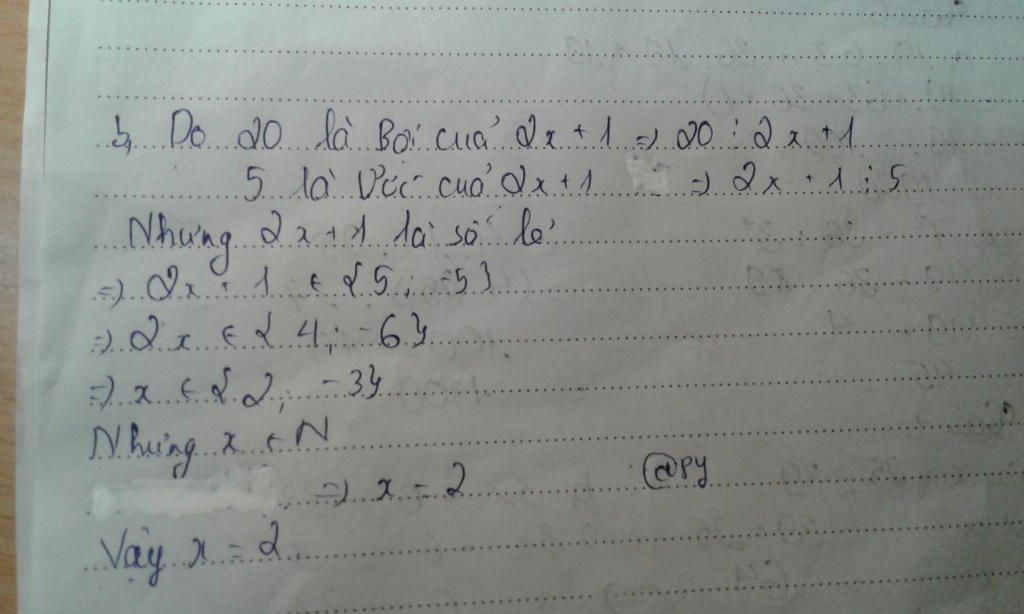 b, Do 20 là Bội của 2x + 1 => 20 ⋮ 2x + 1
5 là Ước của 2x + 1 => 2x + 1 ⋮ 5
Nhưng 2x + 1 là số lẻ
=> 2x + 1 ∈ {5; -5}
=> 2x ∈ {4; -6}
=> x ∈ {2; -3}
Nhưng x ∈ N
=> x = 2
@py
Vậy x = 2